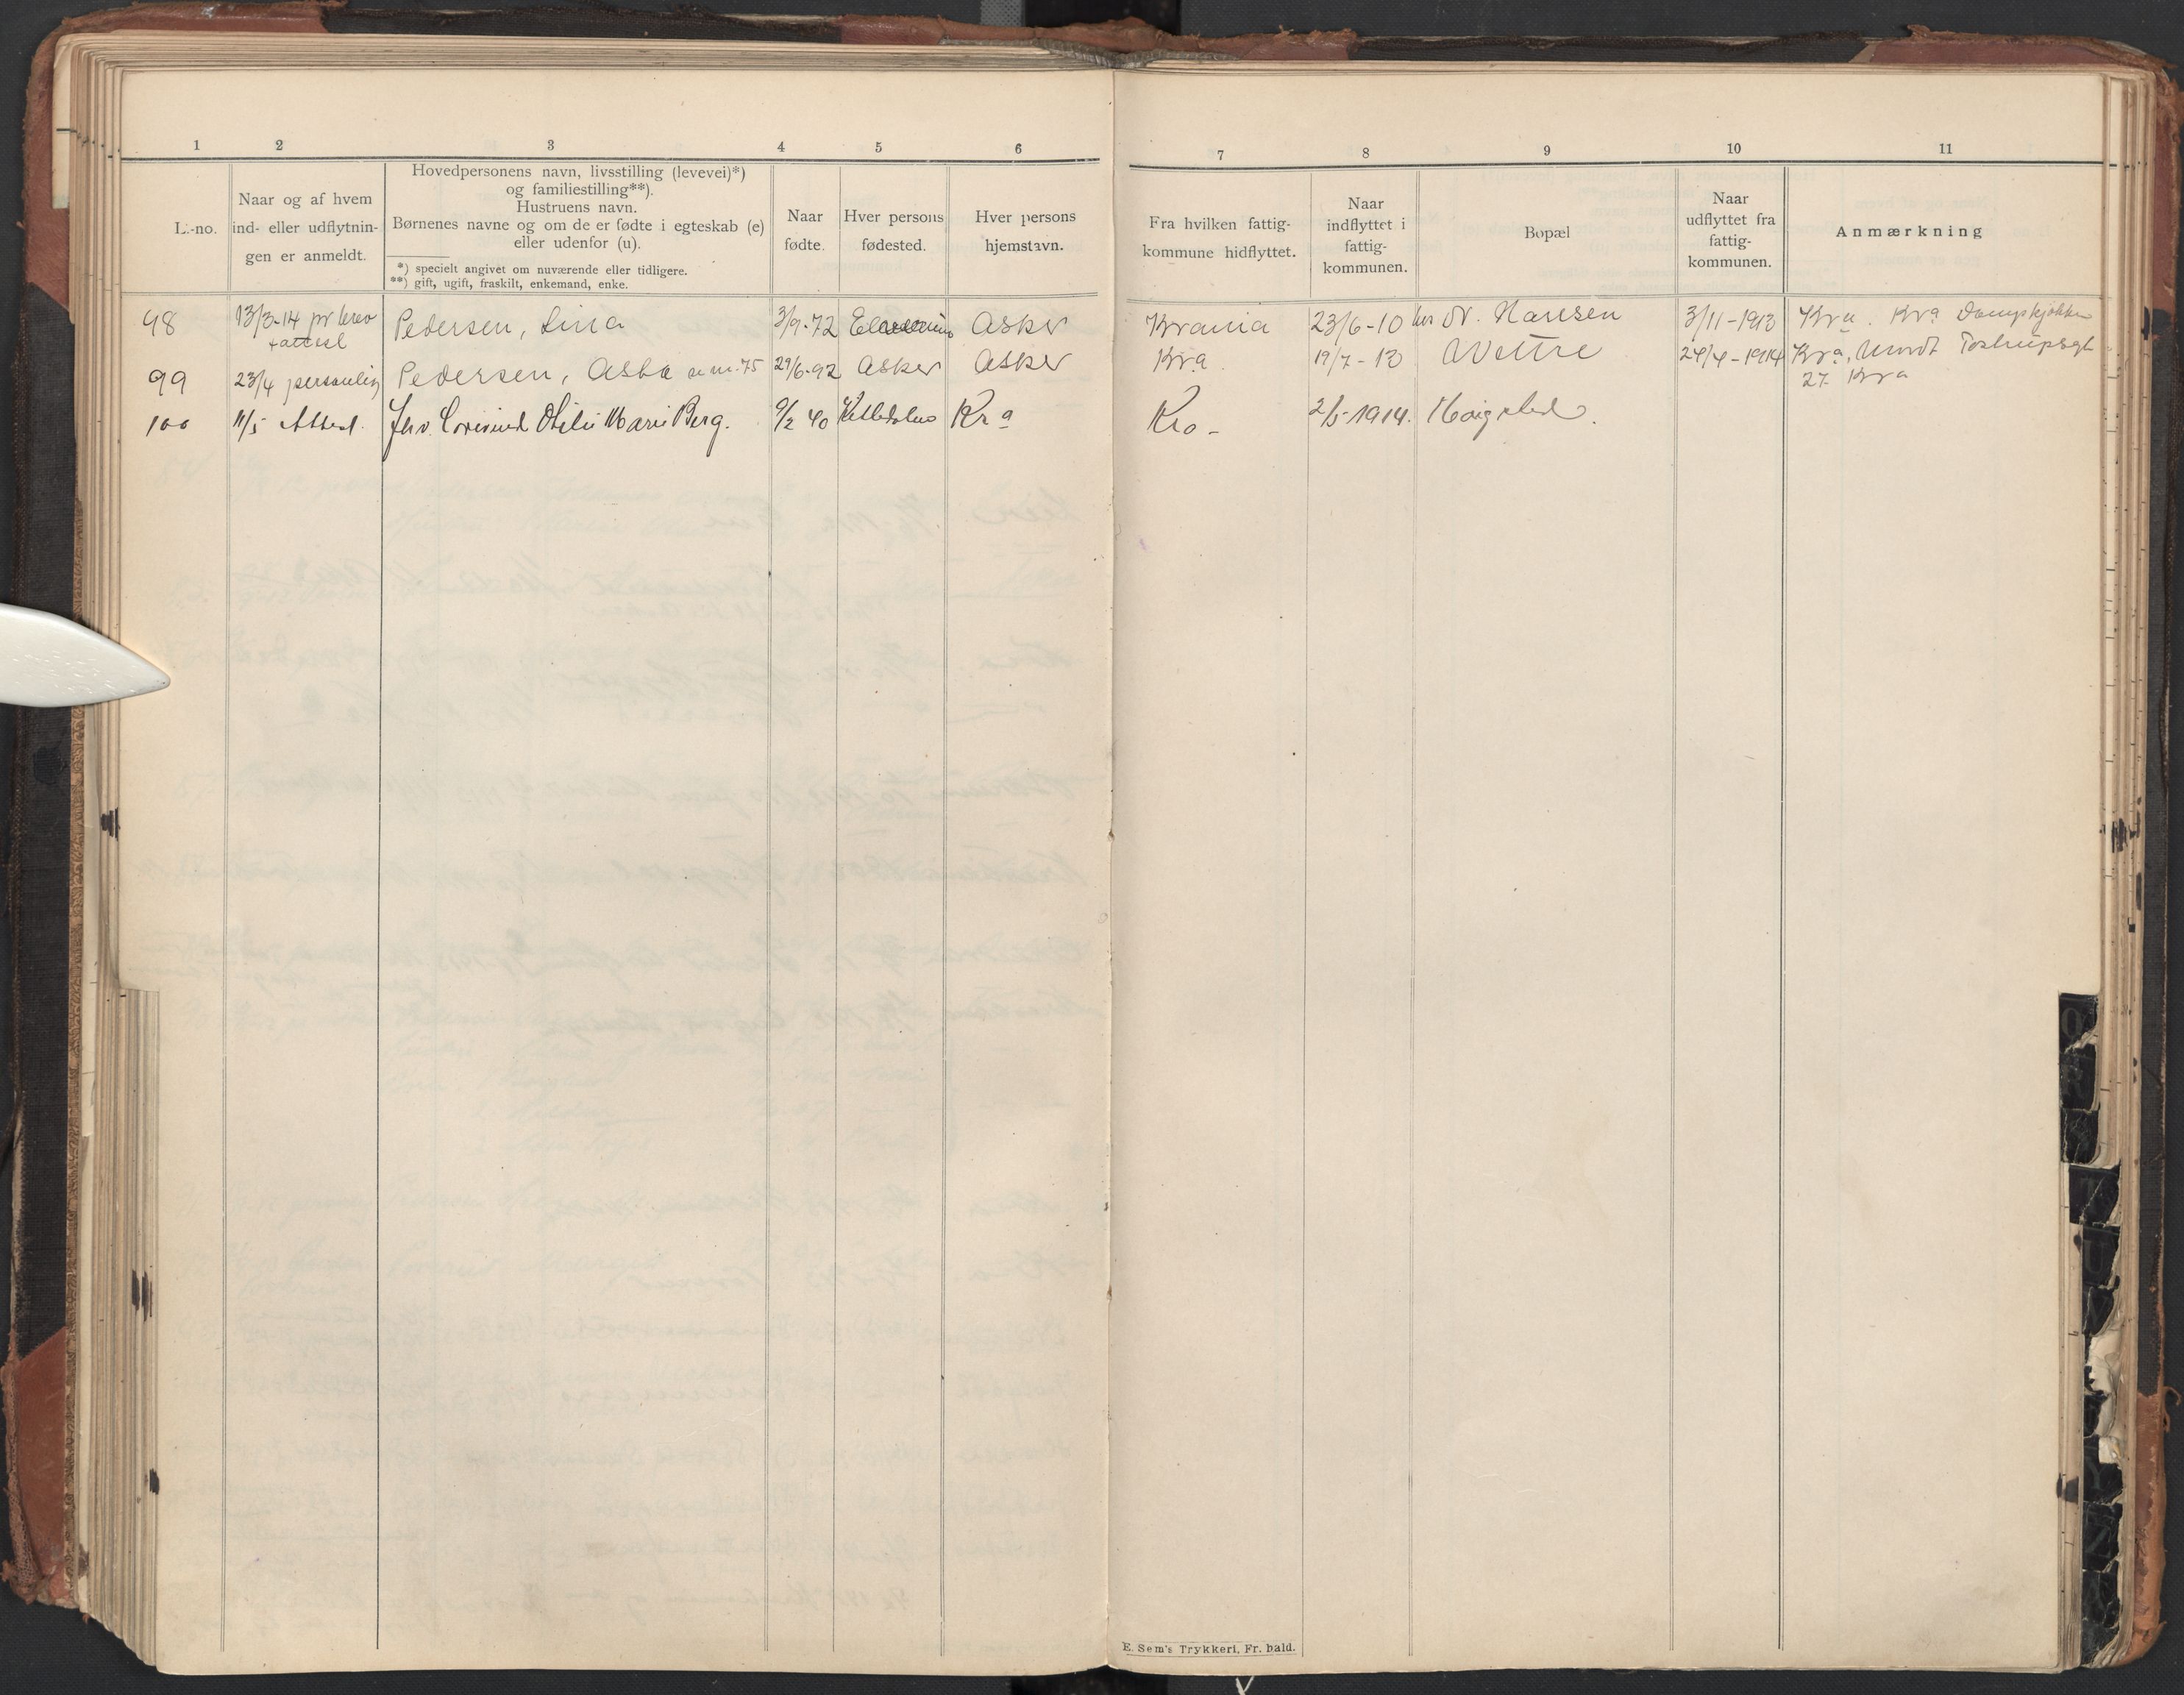 1 2 3 4 5 6 7 8 9 10 11
L.-no.
Naar og af hvem
ind- eller udflytnin-
gen er anmeldt.
Hovedpersonens navn, livsstilling (levevei)*)
og familiestilling**).
Hustruens navn.
Børnenes navne og om de er fødte i egteskab (e)
eller udenfor (u).
*) specielt angivet om nuværende eller tidligere.
**) gift, ugift, fraskilt, enkemand, enke.
Naar
fødte.
Hver persons
fødested.
Hver persons
hjemstavn.
Fra hvilken fattig-
kommune hidflyttet.
Naar
indflyttet i
fattig-
kommunen.
Bopæl
Naar
udflyttet fra
fattig-
kommunen.
Anmærkning
98 13/3-14 pr brev Pedersen, Lina 3/9-72 Asker Krania 23/6-10 hos N. Hansen 3/11-1913 Kra. Kra Dampkjøkken
+ attest
99 23/4 personlig Pedersen, Asta se nr. 75 29/6-92 Asker Asker Kra. 19/7-13 Vettre 24/4-1914 Kra, Tostrupsgt
27 Kra
100 11/5 Attest. Otilie Marie Berg. 9/2 40 Kra Kra - 2/5-1914.
E. Sem's Trykkeri, Fr. hald.